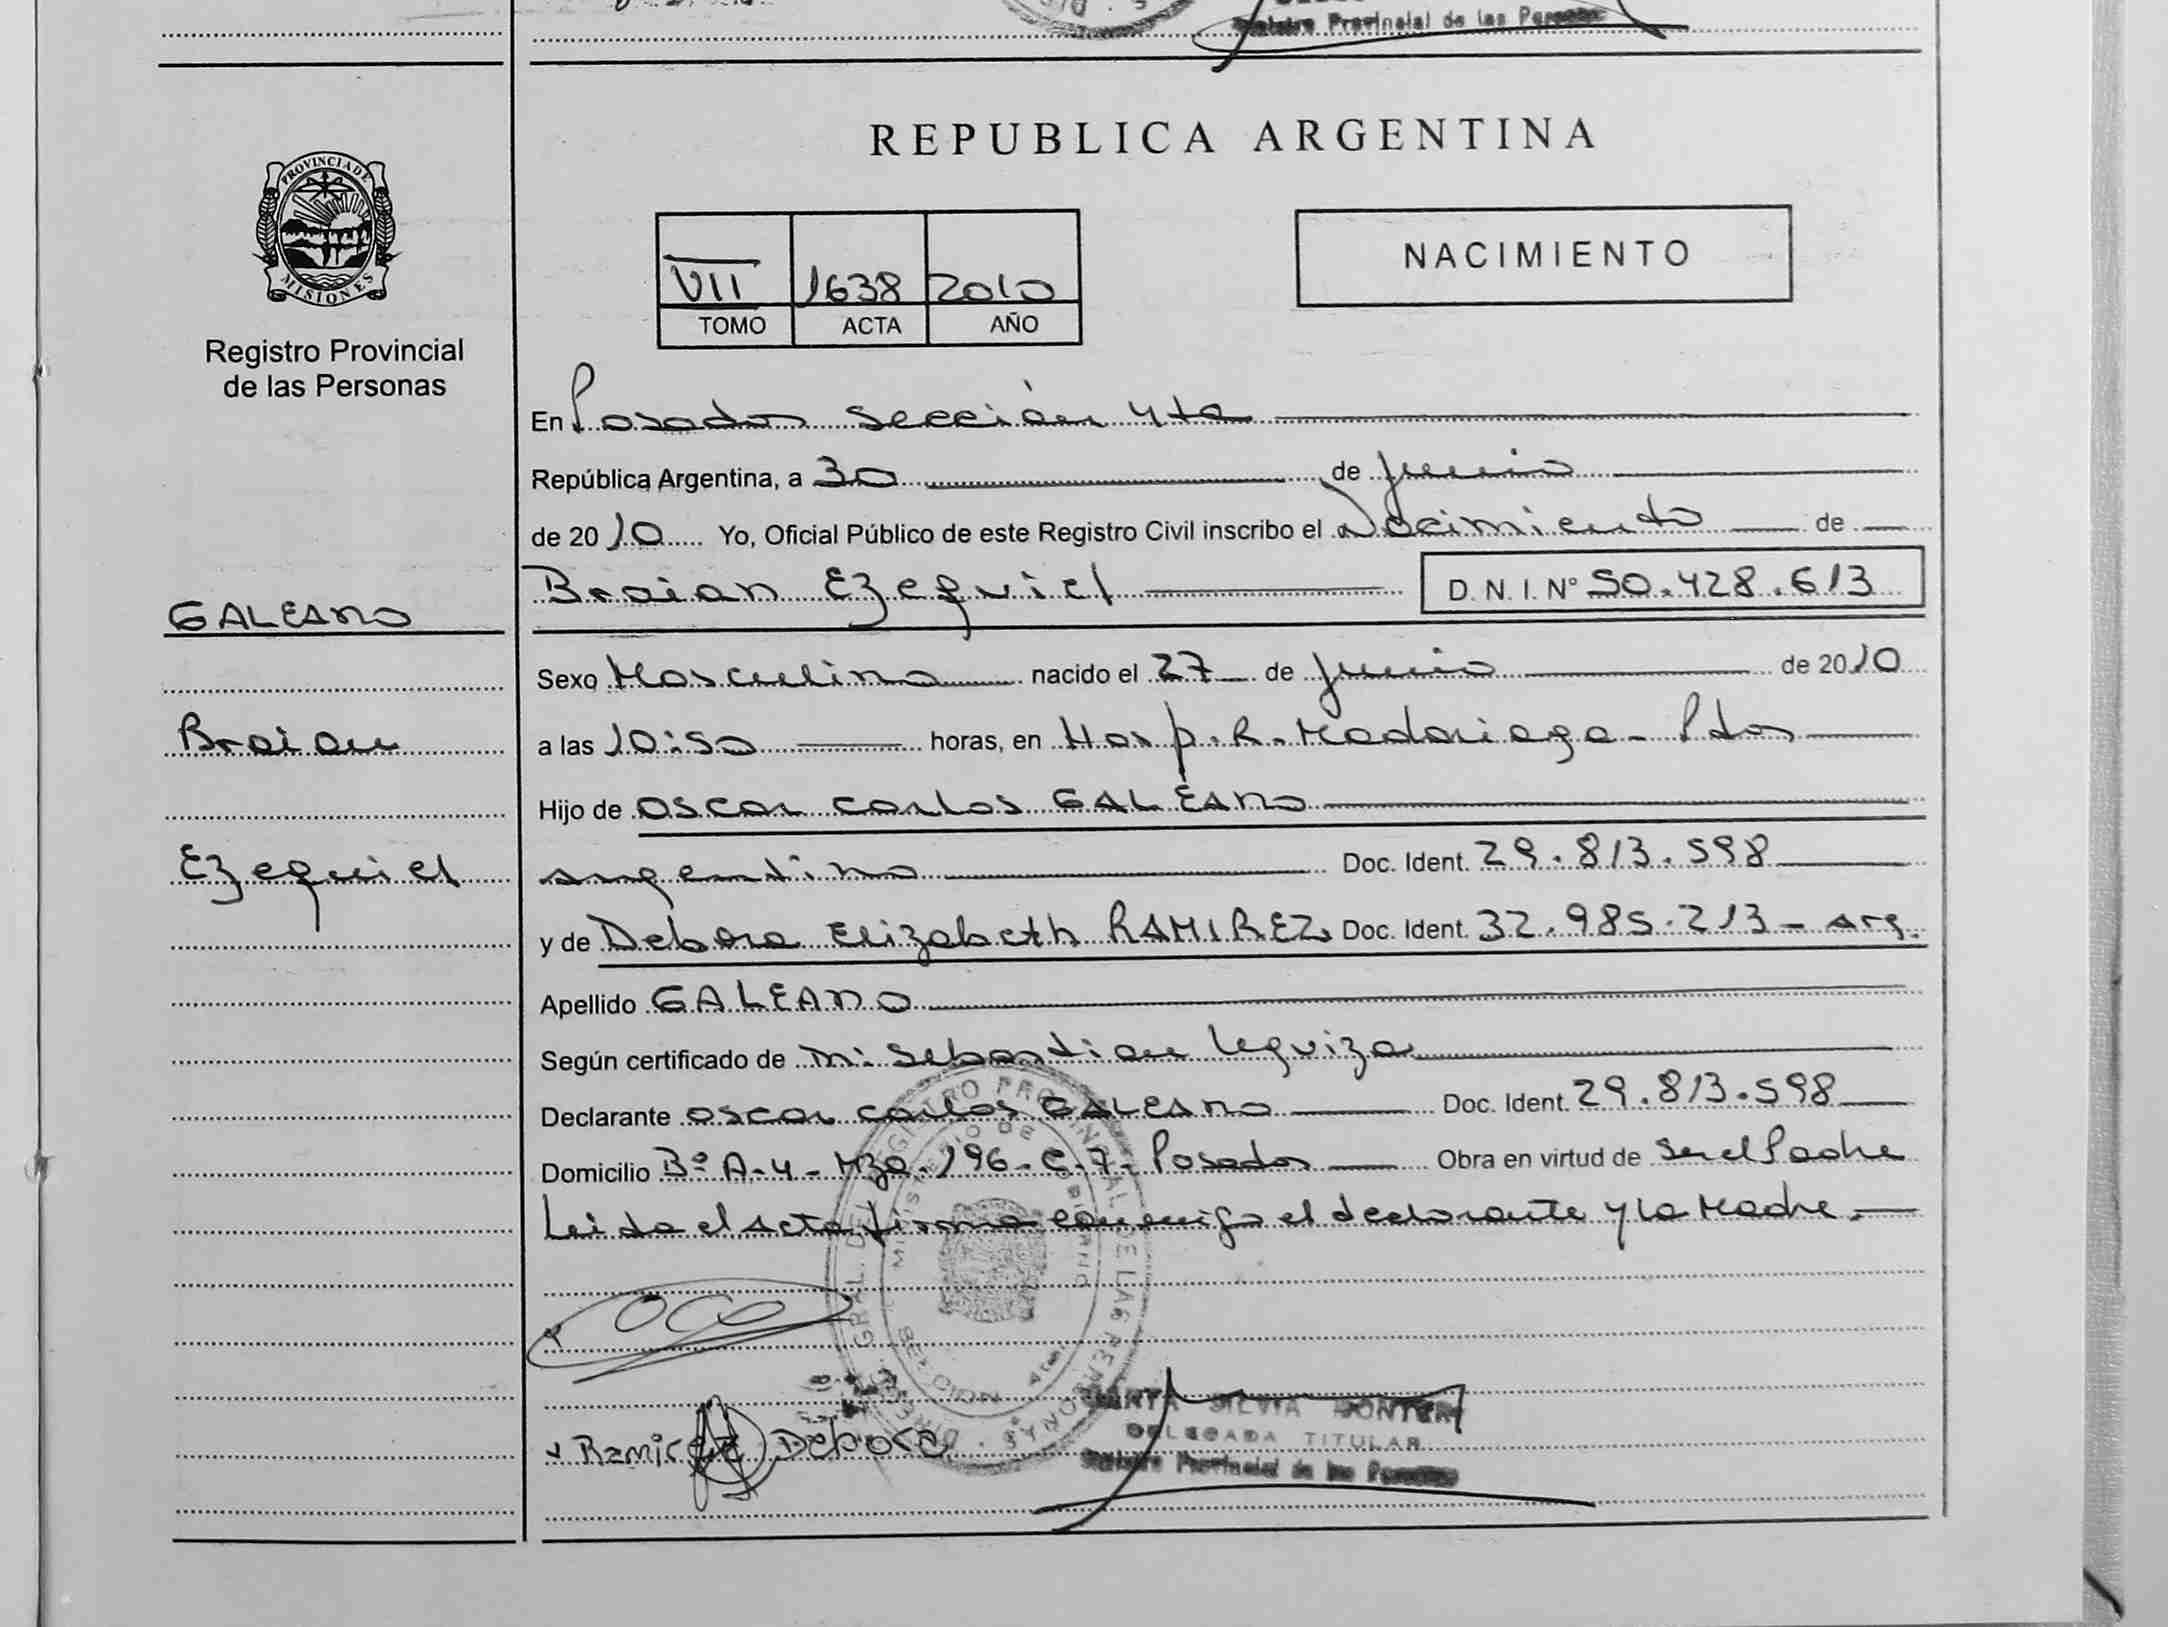 Registro Provincial de las Personas
REPUBLICA ARGENTINA
PROVINCIA DE
MISIONES
Registro Provincial
de las Personas
VII 1638 2010
TOMO ACTA AÑO
NACIMIENTO
En Posadas Sección 4ta
República Argentina, a 30 de Junio
de 2010 Yo, Oficial Público de este Registro Civil inscribo el Nacimiento de
GALEANO
Braian Ezequiel D. N. I. Nº 50.428.613
Sexo Masculino nacido el 27 de Junio de 2010
Braian
a las 10:50 horas, en Hosp. R. Madariaga - Pdas
Hijo de Oscar Carlos GALEANO
Ezequiel
argentino Doc. Ident. 29.813.598
y de Debora Elizabeth RAMIREZ Doc. Ident. 32.985.213 - Arg.
Apellido GALEANO
Según certificado de Sebastian Leguiza
Declarante Oscar Carlos GALEANO Doc. Ident. 29.813.598
Domicilio Bº A-4 - Mza. 196 - C. 7 - Posadas Obra en virtud de Ser el Padre
Leida el Acta firma conmigo el declarante y la Madre.
REGISTRO PROVINCIAL DE LAS PERSONAS
MINISTERIO DE GOBIERNO
Ramirez Debora
SILVIA
DELEGADA TITULAR
Registro Provincial de las Personas